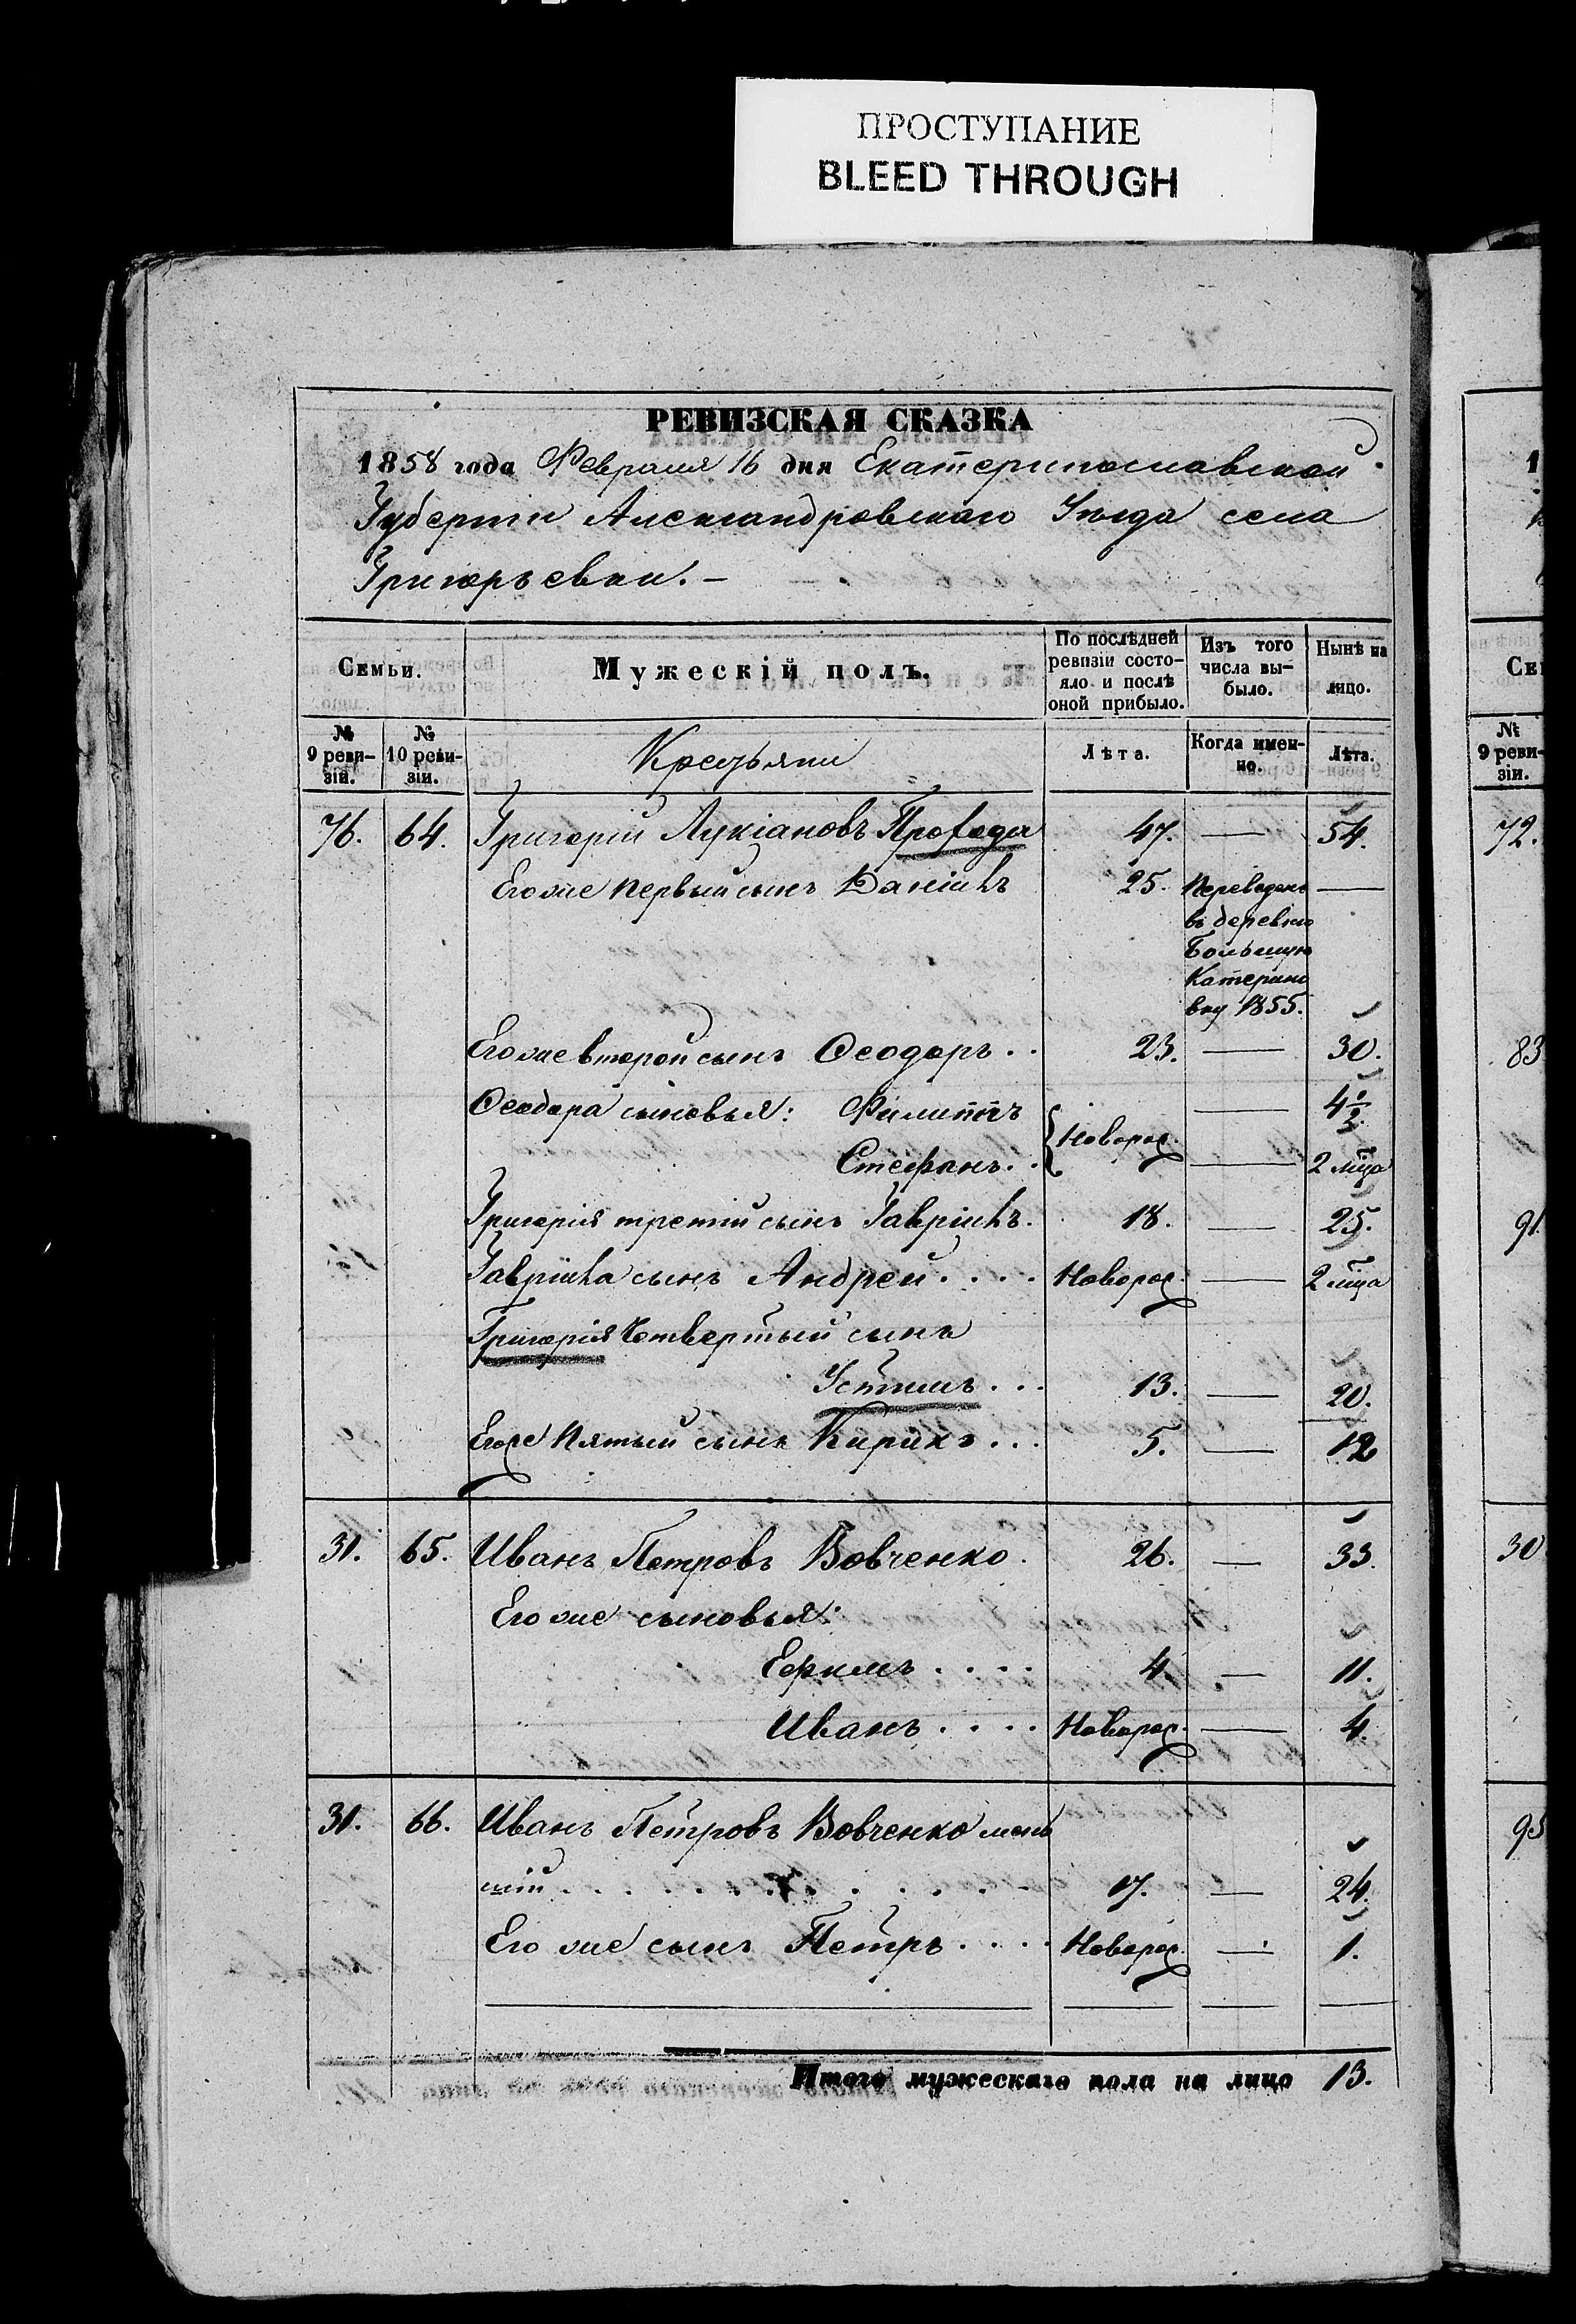 ПРОСТУПАНИЕ
BLEED THROUGH
РЕВИЗСКАЯ СКАЗКА
1858 года Февраля 16 дня Екатеринославской
Губерніи Александровскаго Уѣзда села
Григорьевки. –
Семьи.
Мужескій полъ.
По послѣдней ревизіи состояло и послѣ оной прибыло.
Изъ того числа выбыло.
Нынѣ на лицо.
№ 9 ревизіи.
№ 10 ревизіи.
Крестьяни
Лѣта.
Когда именно.
Лѣта.
76. 64. Григорій Лукіановъ 47. — 54.
Его же первый сынъ Даніилъ 25. Переведенъ —
въ деревню
Большую
Катерино
вку 1855.
Его же второй сынъ Ѳеодоръ . . 23. — 30.
Ѳеодора сыновья: Филиппъ — 4½
Новорож.
Стефанъ. — 2 м͠ца
Григорія третій сынъ Гавріилъ. 18. — 25.
Гавріила сынъ Андрей . . . . Новорож. — 2 м͠ца
Григорія Четвертый сынъ
Устимъ . . . 13. — 20.
Его же Пятый сынъ Кирикъ . . . 5. — 12
31. 65. Иванъ Петровъ Вовченко. 26. — 33.
Его же сыновья:
Ефимъ . . . . 4. — 11.
Иванъ . . . . Новорож. — 4.
31. 66. Иванъ Петровъ Вовченко мень
шій . . . . . . . . . . 17. — 24.
Его же сынъ Петръ . . . . Новорож. — 1.
Итого мужескаго пола на лицо 13.
1
Се
№ 9 реви-
зіи.
72.
83
91.
30
95